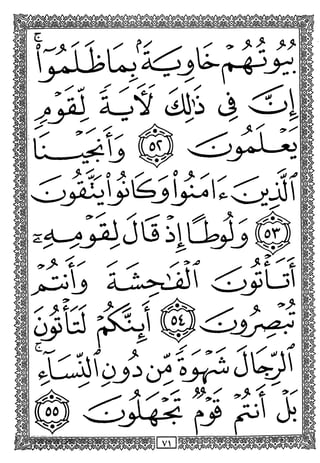 بُيُوتُهُمْ خَاوِيَةًۢ بِمَا ظَلَمُوٓا۟ۗ
إِنَّ فِى ذَٰلِكَ لَأَيَةً لِّقَوْمٍ
يَعْلَمُونَ ٥٢ وَأَنجَيْنَا
الَّذِينَ ءَامَنُوا۟ وَكَانُوا۟ يَتَّقُونَ
٥٣ وَلُوطًا إِذْ قَالَ لِقَوْمِهِۦٓ
أَتَأْتُونَ الْفَٰحِشَةَ وَأَنتُمْ
تُبْصِرُونَ ٥٤ أَئِنَّكُمْ لَتَأْتُونَ
الرِّجَالَ شَهْوَةً مِّن دُونِ النِّسَآءِۚ
بَلْ أَنتُمْ قَوْمٌ تَجْهَلُونَ ٥٥
٧١